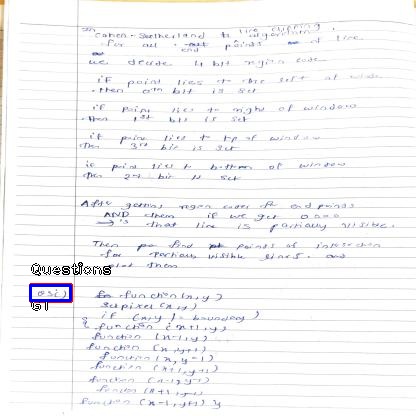 In Cohen-Sutherland line clipping algorithm
for all end points of line
we decide 4 bit region code
if point lies to the left of window
then 0th bit is set
if point lies to right of window
then 1st bit is set
if point lies to top of window
then 3rd bit is set
if point lies to bottom of window
then 2nd bit is set
After getting region codes of end points
AND them if we get 0000
that line is partially visible.
Then find points of intersection
for partially visible lines and
plot them
Questions
Q5i)
function(x,y)
setpixel(x,y)
if (x,y != boundary)
{ function (x+1,y)
function (x-1,y)
function (x,y+1)
function (x,y-1)
function (x+1,y+1)
function
function (x+1,y-1)
function (x-1,y+1) }